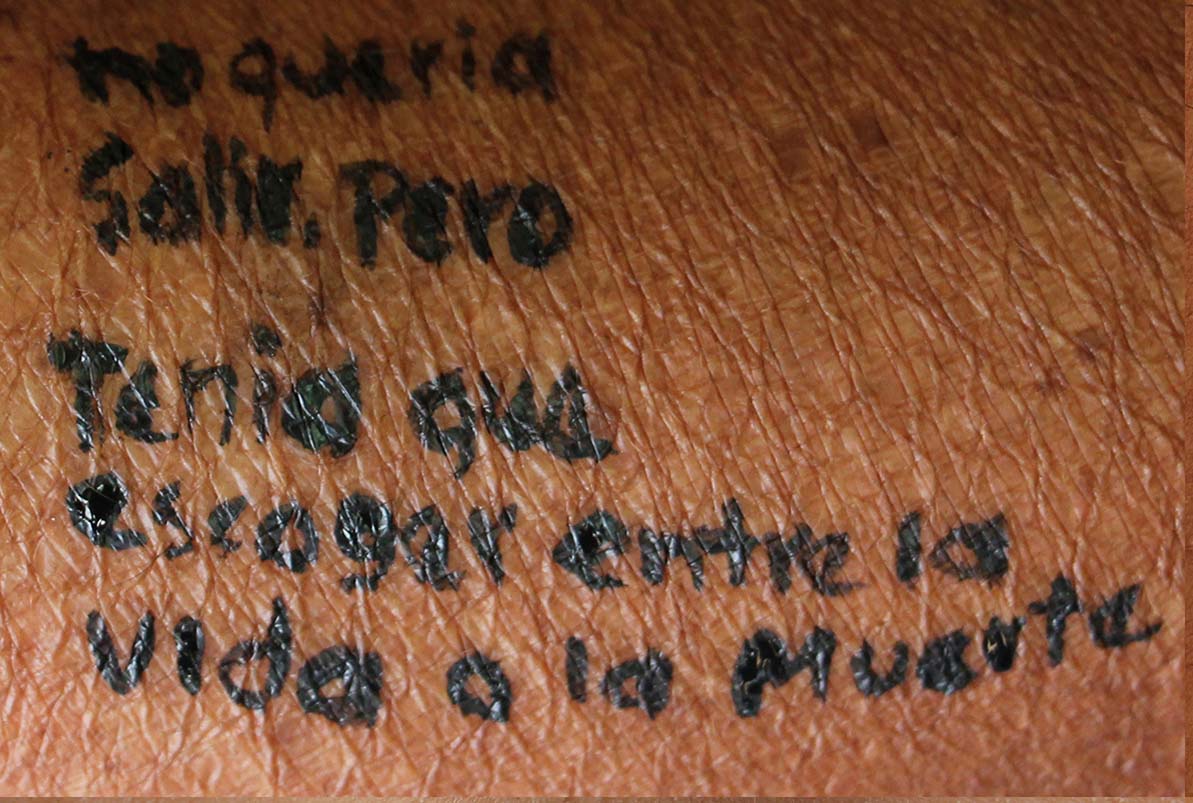 no queria
Salir. Pero
Tenia que
escoger entre la
vida o la Muerte